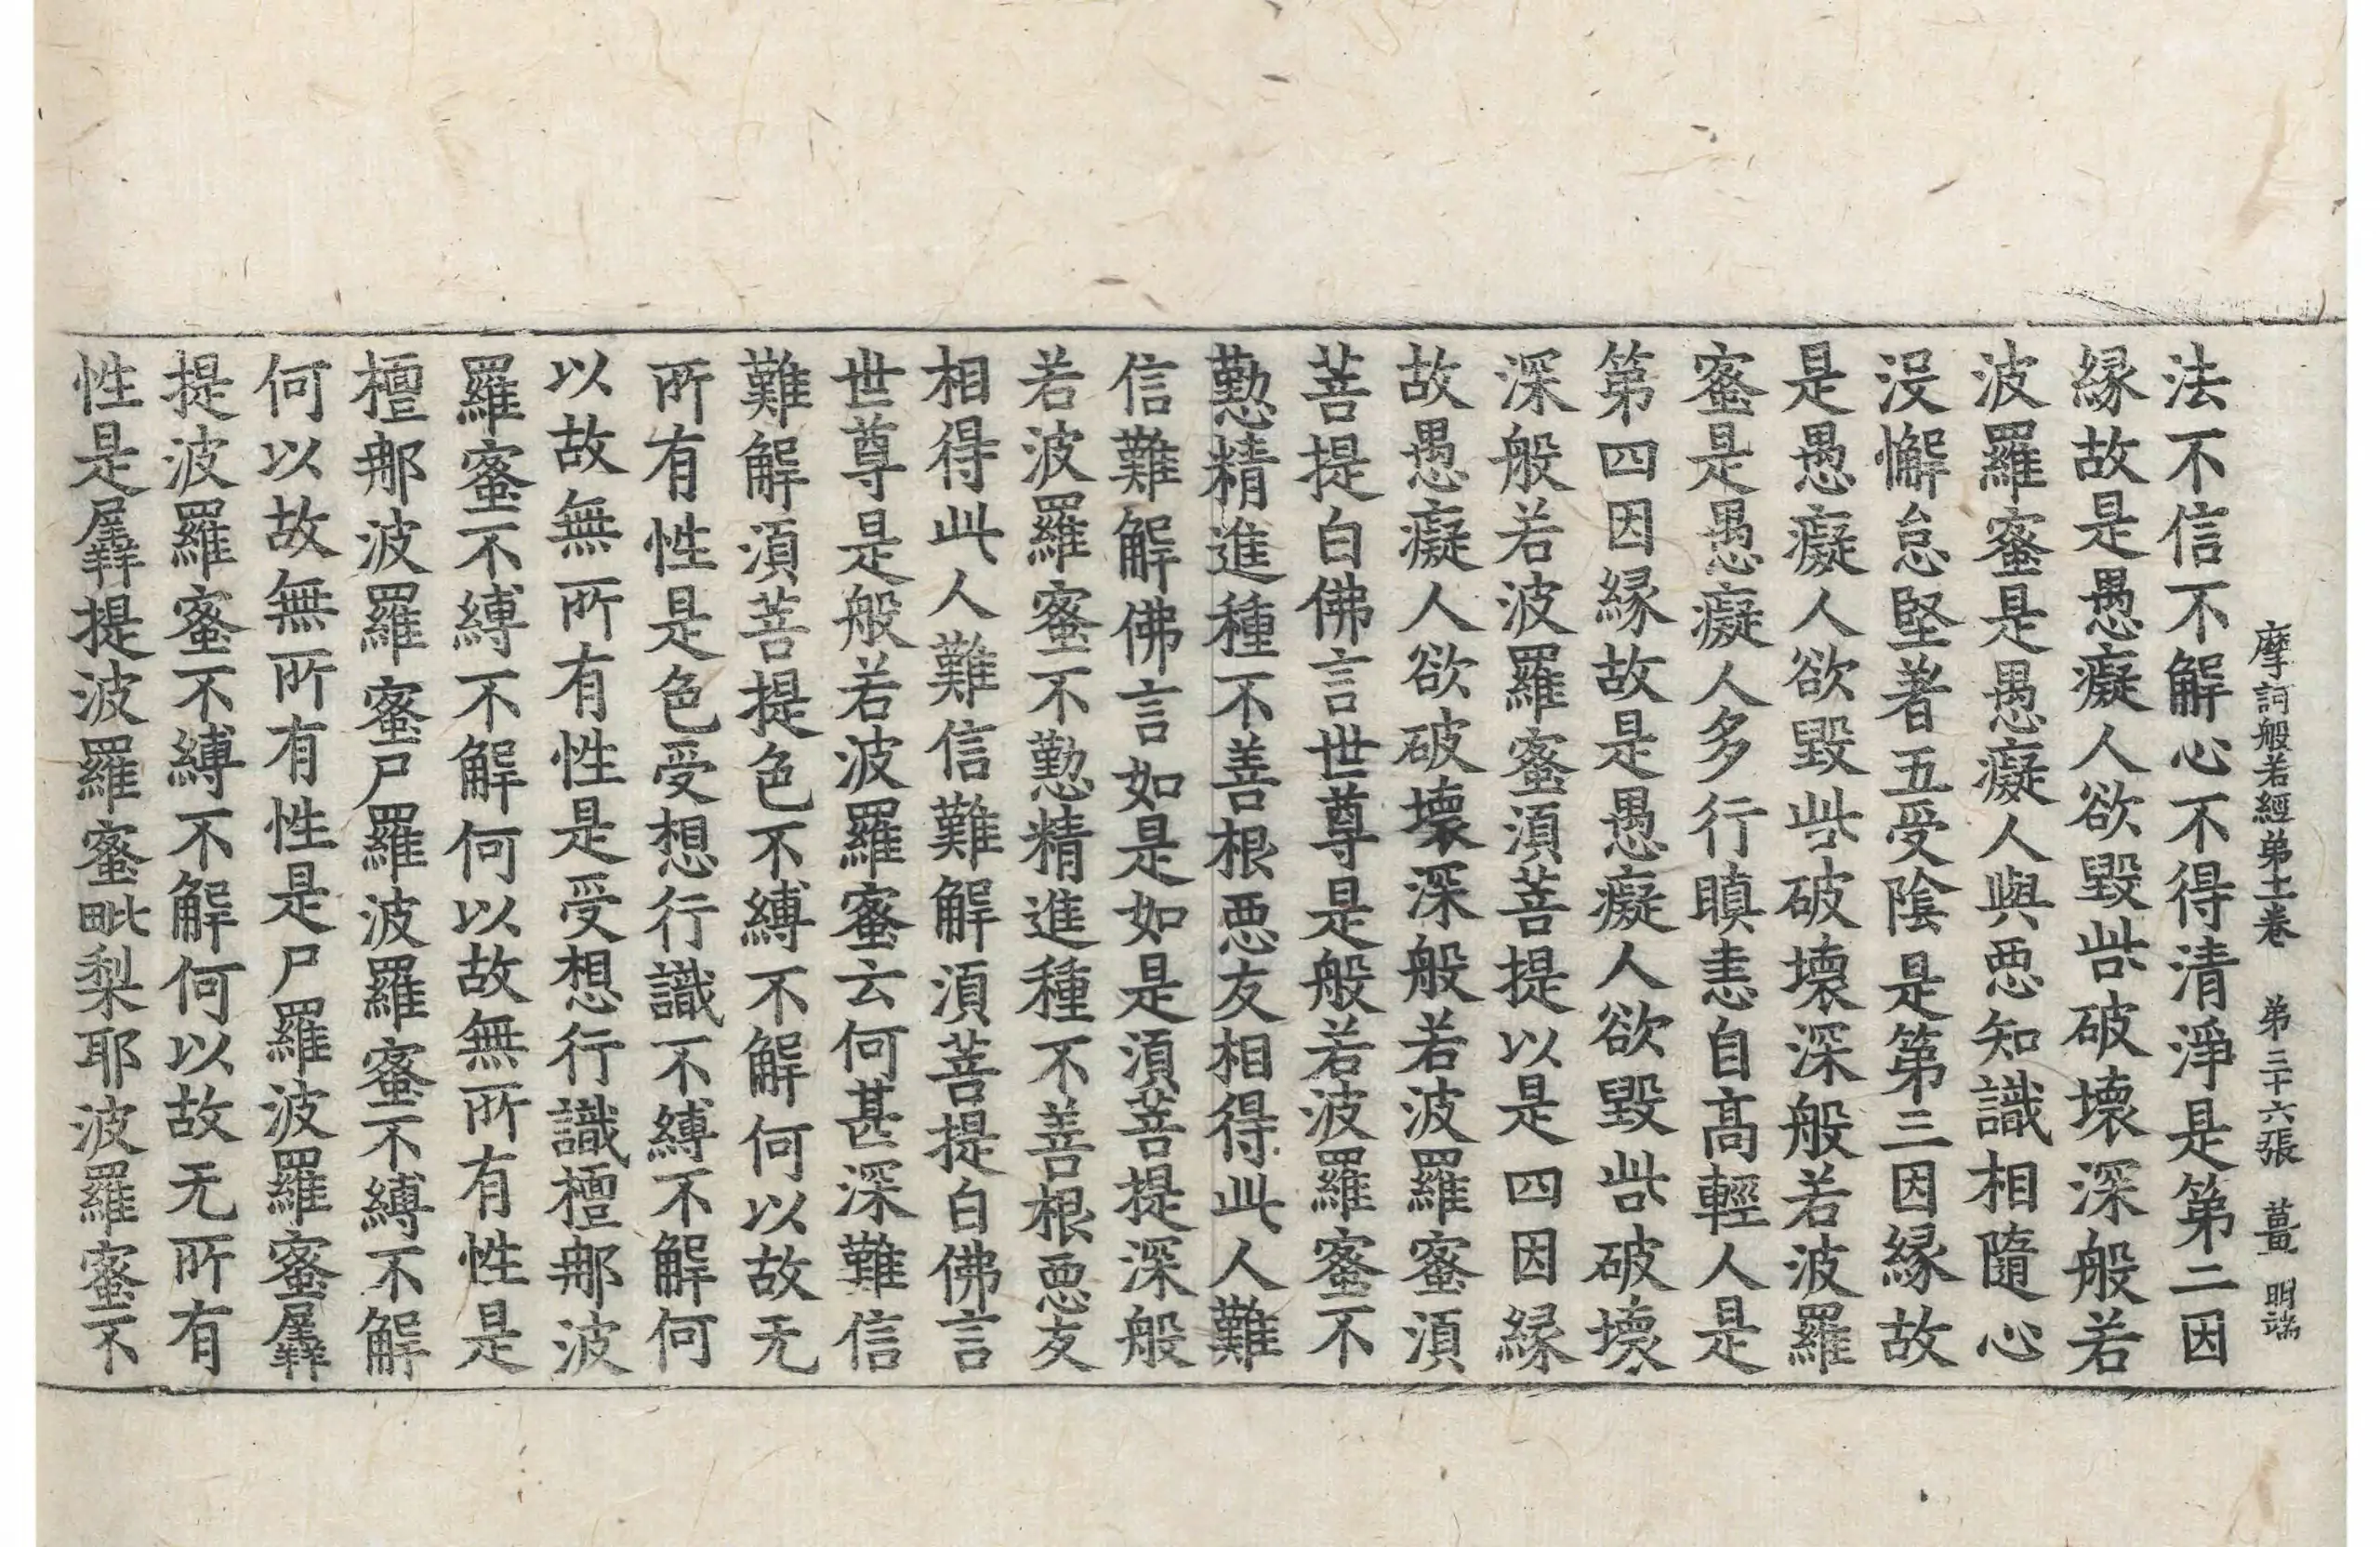 摩訶般若經第十一卷　第三十六張　薑　明端
法不信不解心不得清淨是第二因
緣故是愚癡人欲毀呰破壞深般若
波羅蜜是愚癡人與惡知識相隨心
沒懈怠堅著五受陰是第三因緣故
是愚癡人欲毀呰破壞深般若波羅
蜜是愚癡人多行瞋恚自高輕人是
第四因緣故是愚癡人欲毀呰破壞
深般若波羅蜜須菩提以是四因緣
故愚癡人欲破壞深般若波羅蜜須
菩提白佛言世尊是般若波羅蜜不
懃精進種不善根惡友相得此人難
信難解佛言如是如是須菩提深般
若波羅蜜不懃精進種不善根惡友
相得此人難信難解須菩提白佛言
世尊是般若波羅蜜云何甚深難信
難解須菩提色不縛不解何以故无
所有性是色受想行識不縛不解何
以故無所有性是受想行識檀那波
羅蜜不縛不解何以故無所有性是
檀那波羅蜜尸羅波羅蜜不縛不解
何以故無所有性是尸羅波羅蜜羼
提波羅蜜不縛不解何以故无所有
性是羼提波羅蜜毗梨耶波羅蜜不